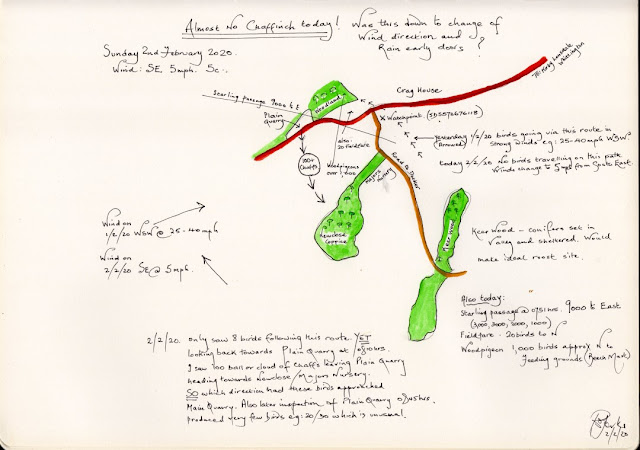 Almost No Chaffinch today! Was this down to change of
Wind direction and
Rain early doors?
Sunday 2nd February 2020.
Wind: SE, 5mph. 5c.
Starling passage 9000 to E
Woodland
Plain
Quarry
Crag House
To: Kirkby Lonsdale
X Watchpoint. (SD55726 76118)
also:
20 fieldfare
Woodpigeons
over 1,000
100+
Chaffs
Yesterday 1/2/20 birds going via this route in
(Arrowed) Strong winds eg: 25-40mph WSW
today 2/2/20 No birds travelling on this path
Winds change to 5mph from South East.
Majors
Nursery
Road to
Newclose
Coppice
Kear Wood
Kear Wood - conifers set in
Valley and sheltered. Would
make ideal roost site.
Wind on
1/2/20 WSW @ 25-40mph
Wind on
2/2/20 SE @ 5mph.
Also today:
Starling passage @ 0751hrs. 9000 to East
(3,000, 2,000, 5,000, 1,000)
Fieldfare - 20 birds to N
Woodpigeon 1,000 birds approx N to
feeding grounds (Beech Mast)
2/2/20. only saw 8 birds following this route YET
looking back towards Plain Quarry at
I saw 100 ball or cloud of chaffs leaving Plain Quarry
heading towards Newclose / Majors Nursery.
SO which direction had these birds approached
Main Quarry. Also later inspection of Plain Quarry 0845hrs.
produced very few birds eg: 20/30 which is unusual.
2/2/20